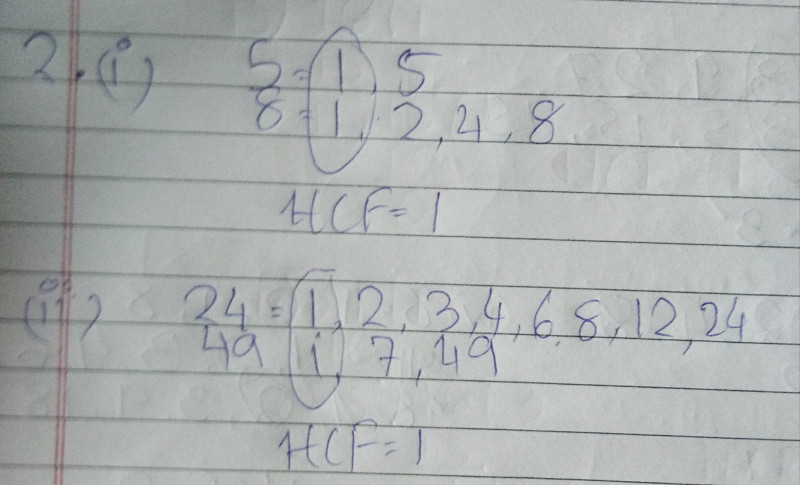 2. (i) 5 = 1, 5
8 = 1, 2, 4, 8
HCF = 1
(ii) 24 = 1, 2, 3, 4, 6, 8, 12, 24
49 1, 7, 49
HCF = 1